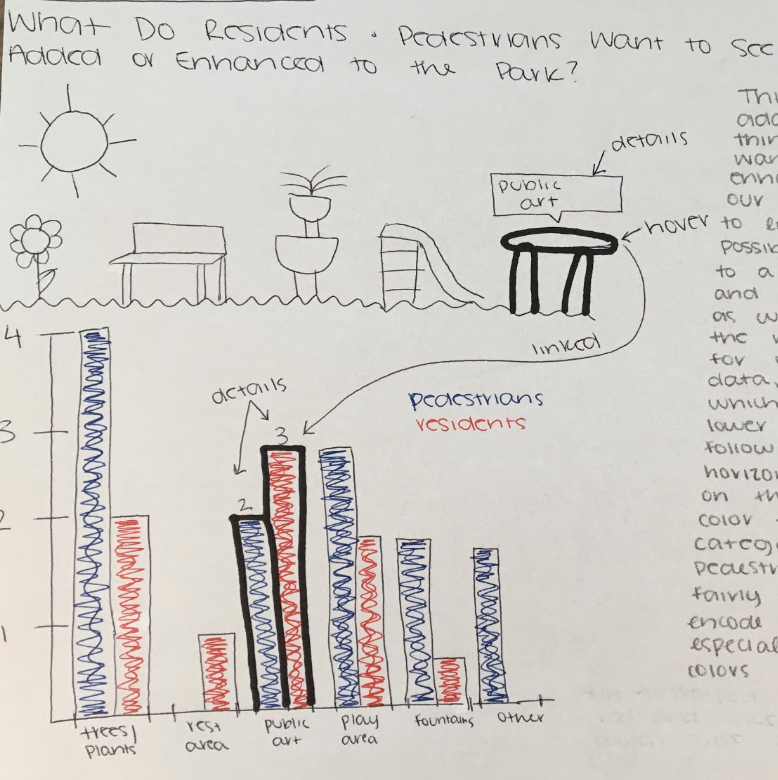 What Do Residents . Pedestrians Want to See
Added or Enhanced to the Park?
details
public
art
hover
linked
details
pedestrians
residents
4
3
2
1
2
3
trees/
Plants
rest
area
public
art
play
area
fountains
Other
add
to
possib
to a
and
as w
the
for
data,
which
lower
follow
horizo
on th
color
catego
pedestr
fairly
encode
especial
colors